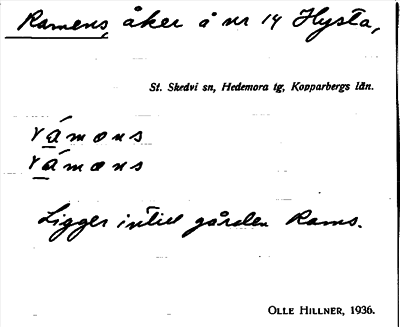 Ramens, åker å nr 14 Hysta,
St. Skedvi sn, Hedemora tg, Kopparbergs län.
rámons
rámons
Ligger intill gården Rams.
OLLE HILLNER, 1936.